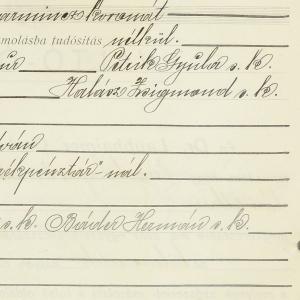 harmincz koronát
ámolásba tudósitás nélkül.
Petrik Gyula s. k.
Halász Zsigmond s. k.
takarékpénztár"-nál.
s. k. Bánder Hermán s. k.